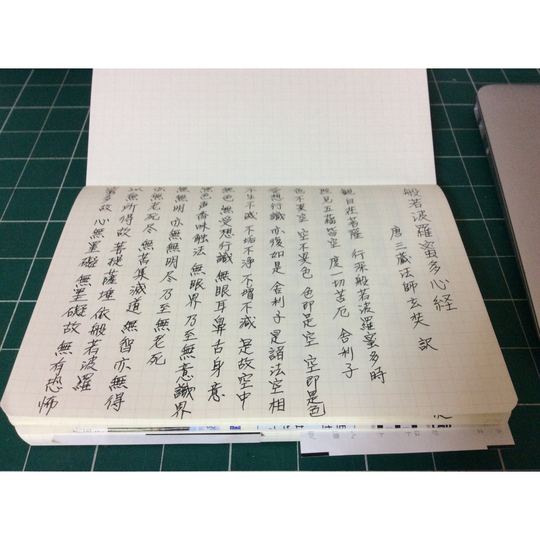 般若波羅蜜多心経
唐三蔵法師玄奘 訳
観自在菩薩 行深般若波羅蜜多時
照見五蘊皆空 度一切苦厄 舎利子
色不異空 空不異色 色即是空 空即是色
受想行識 亦復如是 舎利子 是諸法空相
不生不滅 不垢不浄 不増不減 是故空中
無色 無受想行識 無眼耳鼻舌身意
無色声香味触法 無眼界 乃至無意識界
無無明 亦無無明尽 乃至無老死
無老死尽 無苦集滅道 無智亦無得
以無所得故 菩提薩埵 依般若波羅
蜜多故 心無罣礙 無罣礙故 無有恐怖